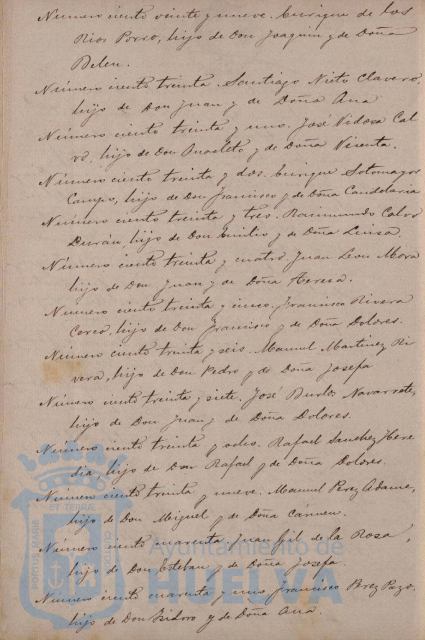 Número ciento veinte y nueve. Enrique de los
Rios Porro, hijo de Don Joaquin y de Doña
Belen.
Número ciento treinta. Santiago Nieto Clavero,
hijo de Don Juan y de Doña Ana
Número ciento treinta y uno. José Vidosa Cal
vo, hijo de Don Anacleto y de Doña Vicenta.
Número ciento treinta y dos. Enrique Sotomayor
Campo, hijo de Don Francisco y de Doña Candelaria
Número ciento treinta y tres. Raimundo Calvo
Durán, hijo de Don Emilio y de Doña Luisa.
Número ciento treinta y cuatro. Juan Leon Mora
hijo de Don Juan y de Doña Teresa.
Número ciento treinta y cinco. Francisco Rivera
hijo de Don Francisco y de Doña Dolores.
Número ciento treinta y seis. Manuel Martinez Ri
vera, hijo de Don Pedro y de Doña Josefa
Número ciento treinta y siete. José Navarrete,
hijo de Don Juan y de Doña Dolores.
Número ciento treinta y ocho. Rafael Sanchez Here
dia, hijo de Don Rafael y de Doña Dolores.
Número ciento treinta y nueve. Manuel Perez Adame,
hijo de Don Miguel y de Doña Carmen.
Número ciento cuarenta Juan Gil de la Rosa,
hijo de Don Esteban y de Doña Josefa.
Número ciento cuarenta y uno Francisco Perez Pazo,
hijo de Don Isidoro y de Doña Ana.
PORTUS MARIS ET TERRAE CUSTODIA
Ayuntamiento de
HUELVA